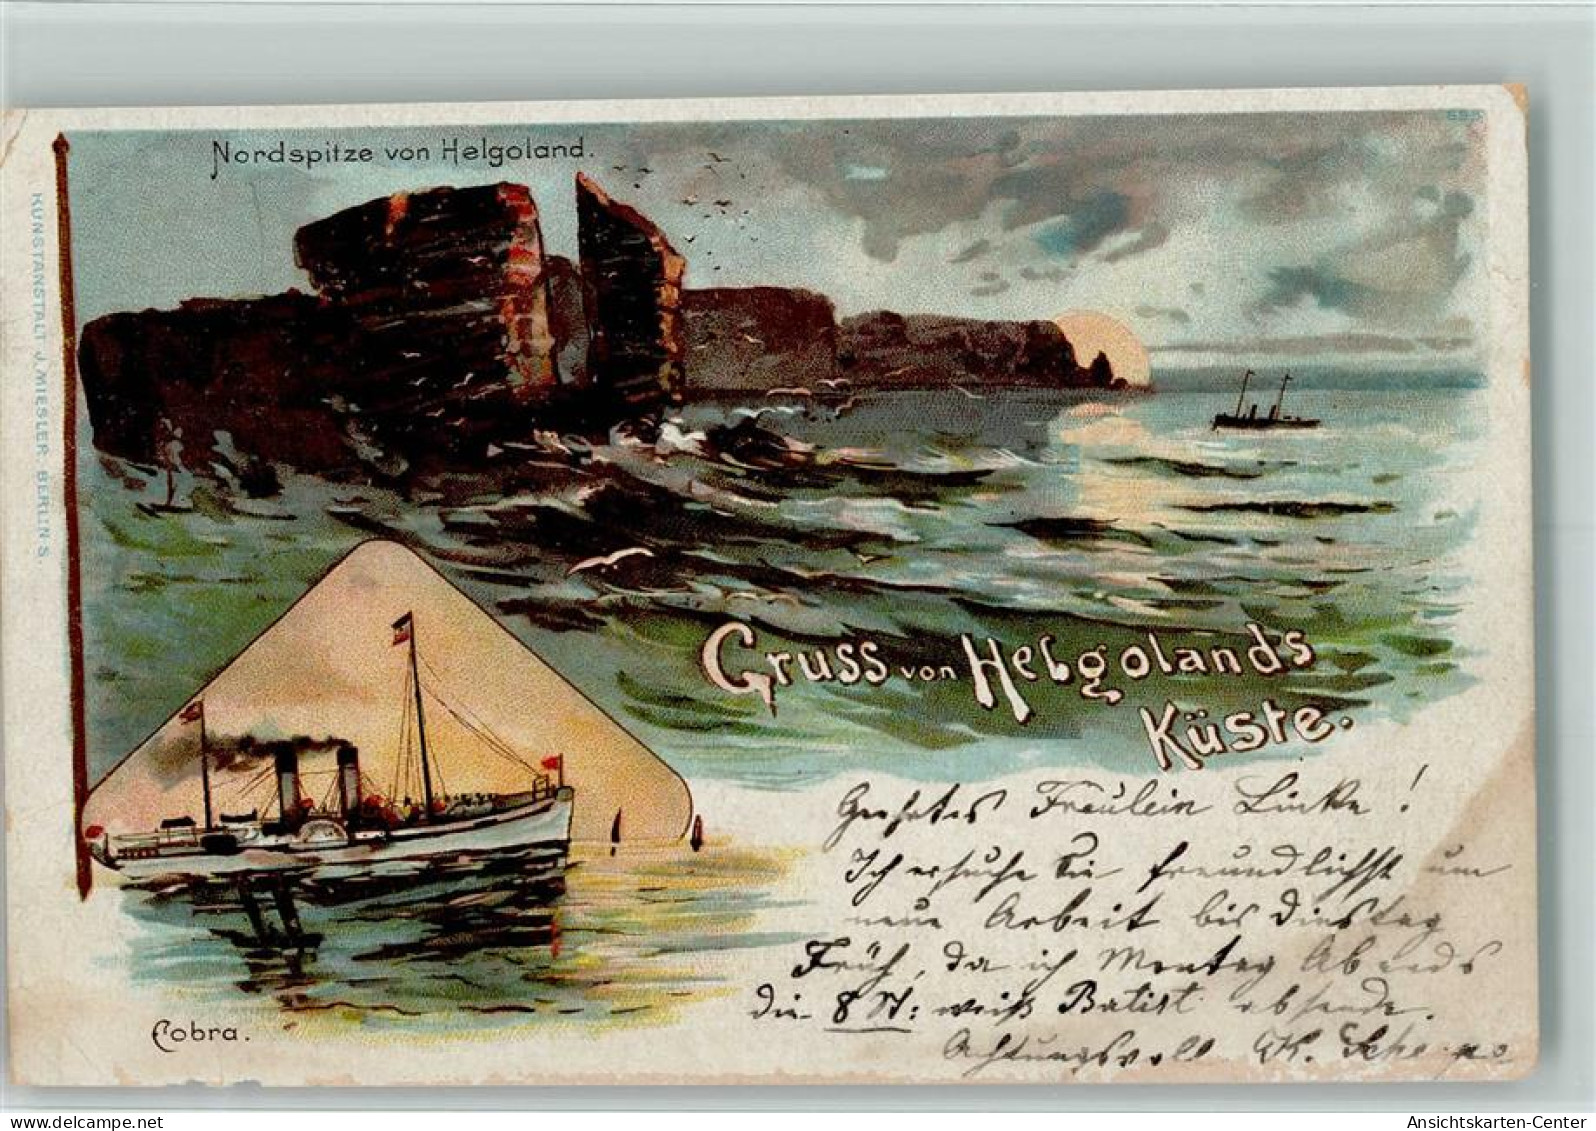 Nordspitze von Helgoland.
595
KUNSTANSTALT J. MIESLER, BERLIN S.
Gruss von Helgolands
Küste.
Geehrtes Fräulein Lücke!
Ich ersuche Sie freundlichst um
neue Arbeit bis Dinstag
Früh, da ich Montag Abends
die 8 St: weiß Batist absende.
Achtungsvoll
Cobra.
www.delcampe.net
Ansichtskarten-Center